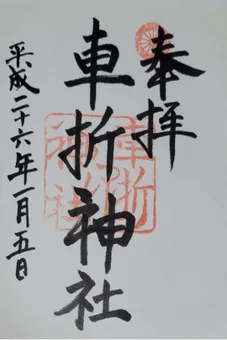 奉拝
車折神社
平成二十六年一月五日
車折神社